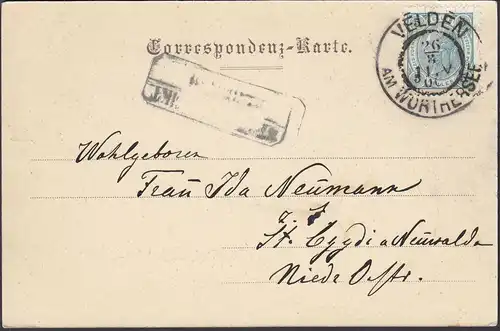 Correspondenz-Karte.
VELDEN
26
8
AM WÖRTHERSEE
Wohlgeboren
Frau Ida Neumann
z. Z.
St. Egydi a Neuwalde
Niede Oestr.